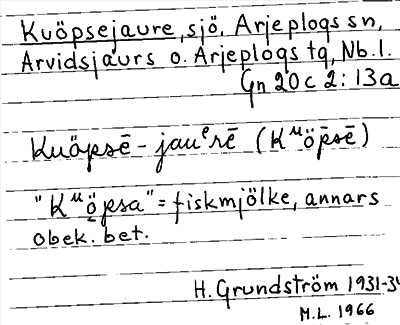 Kuöpsejaure, sjö. Arjeplogs sn,
Arvidsjaurs o. Arjeplogs tg, Nb. l.
Gn 20 c 2: 13 a
Kuöpsē - jauᵉrē (Kᵘöpsē)
"Kᵘöpsa" = fiskmjölke, annars
obek. bet.
H. Grundström 1931-34
M.L. 1966